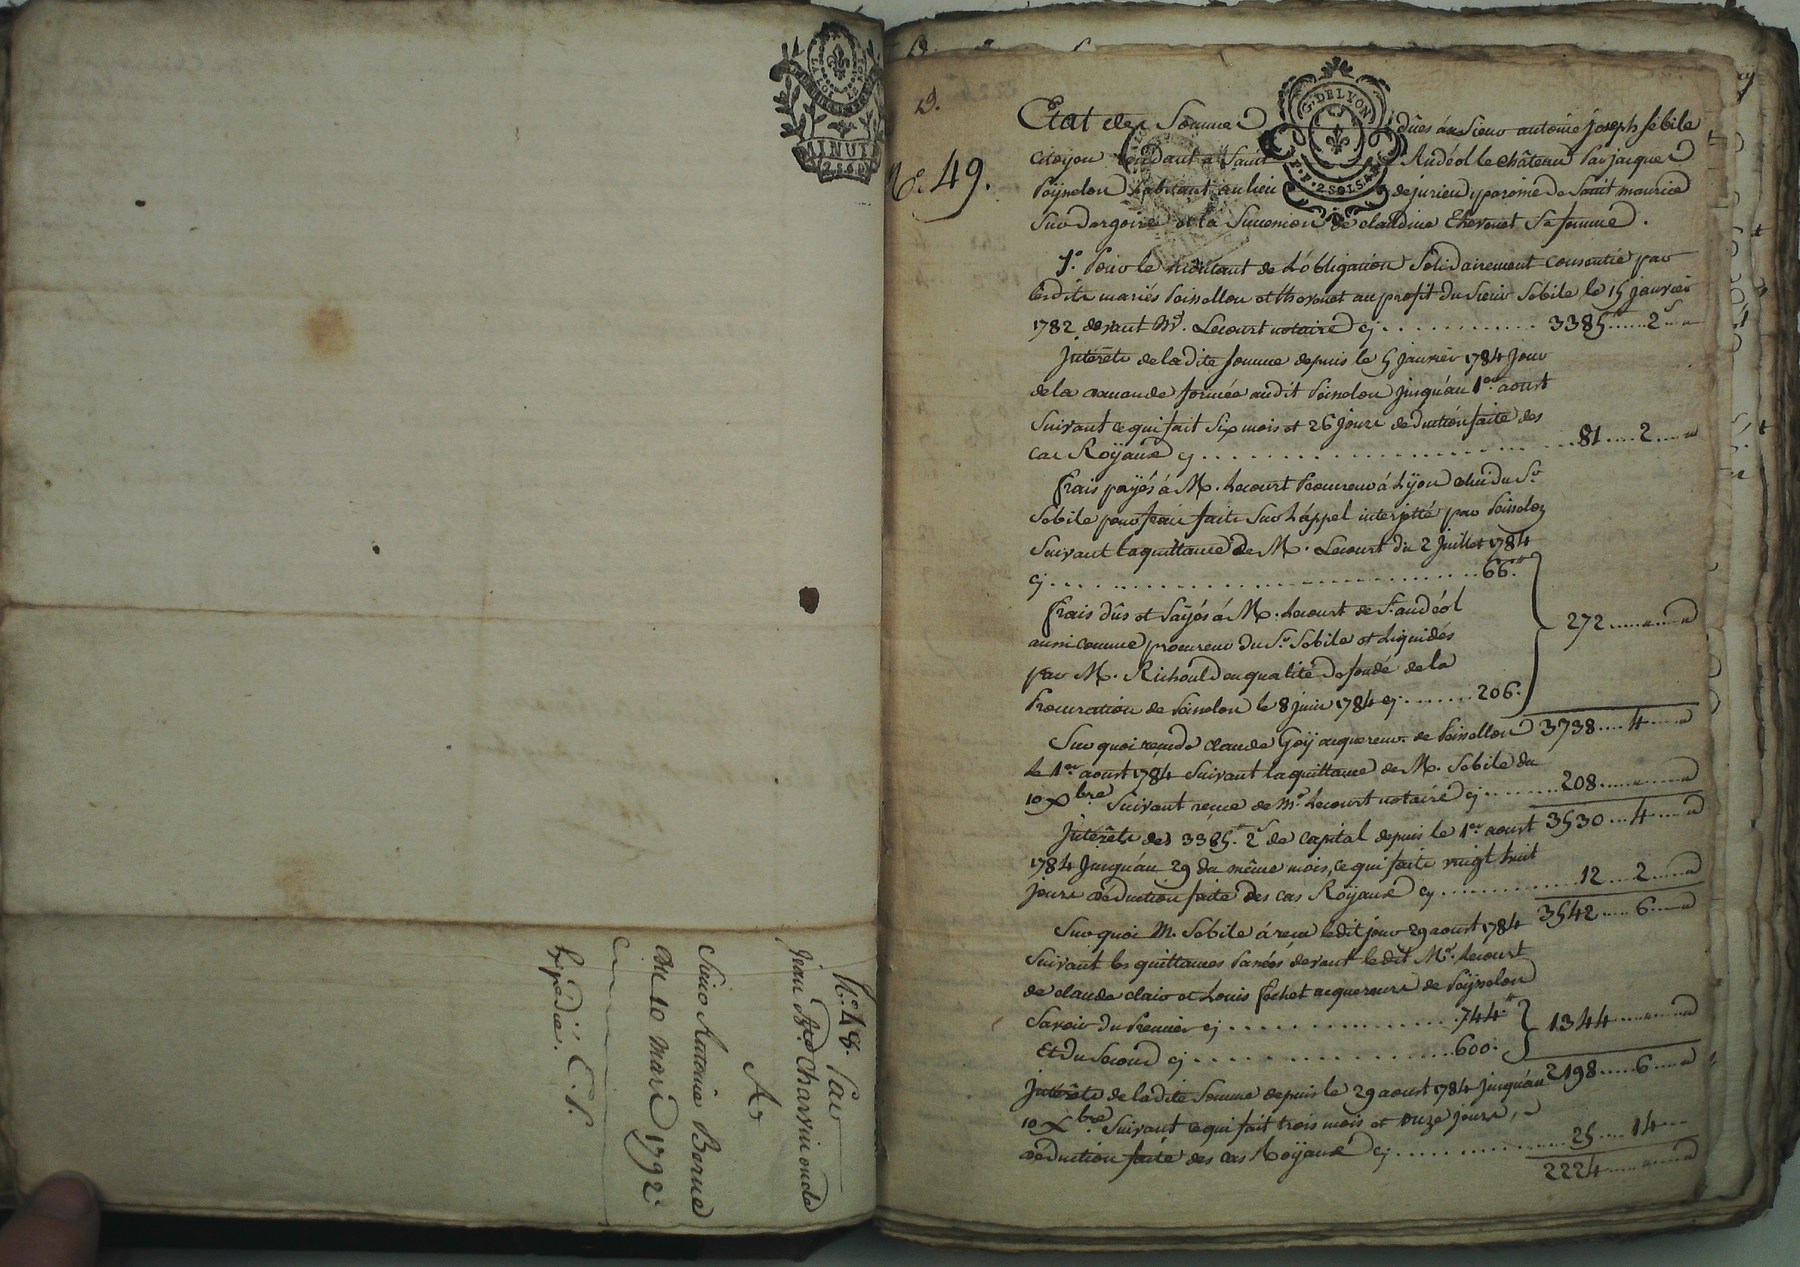 MINUTE
N.° 48. Par
jean Bte Charvin onde
A
Sieur Antoine Borne
du 10 mars 1792.
Expédié. C. P.
D.
N.° 49.
G. DE LYON
P. P. 2 SOLS
Etat des Sommes dües au Sieur antoine joseph sebile
citoyen Residant a Saint Andéol le château Par jacques
Poijnelon habitant au lieu de jurieu paroisse de Saint maurice
Sur dargoire et la Succession de claudine thevenet Sa femme.
1.° Pour le montant de L'obligation Solidairement consentie par
lesdits mariés Poinellon et thevenet au profit du Sieur Sebile le 15 janvier
1782 devant Me. Lecourt notaire cy............ 3385#.....2s..."
Intérêts de ladite somme depuis le 5 janvier 1784 jour
de la demande formée audit Poinelon jusqu'au 1er aoust
Suivant ce qui fait Six mois et 26 jours deduction faite des
cas Royaux cy....................81....2...."
frais payés á M. Lecourt Procureur á Lÿon celui du Sr
Sebile pour frais faits Sur L'appel interjetté par Poinelon
Suivant la quittance de M. Lecourt du 2 Juillet 1784
cy..............................66.#
frais dûs et Payés á M. Lecourt de St. andéol
aussi comme procureur du Sr. Sebile et liquidés
272......"......"
par M. Richould en qualité de fondé de la
Procuration de Poinelon le 8 juin 1784 cy........206.
Sur quoi claude Goÿ acquereur de Poinellon 3738....4...."
Le 1er aoust 1784 Suivant la quittance de M. Sebile du
10 Xbre Suivant reçue de Me Lecourt notaire cy........208......"......"
3530....4...."
Intérêts des 3385# 2s de capital depuis le 1er aoust
1784 Jusqu'au 29 du même mois, ce qui fait vingt huit
jours deduction faite des cas Royaux cy..............12....2...."
3542.....6...."
Sur quoi M. Sebile á reçu ledit jour 29 aoust 1784
Suivant les quittances Passées devant ledit Me. Lecourt
de claude clair et Louis fochet acquereurs de Poÿnelon
Savoir du Premier cy....................744#
1344......"......"
Et du Second cy....................600.
2198.....6...."
Intérêts de ladite Somme depuis le 29 aoust 1784 jusqu'au
10 Xbre Suivant ce qui fait trois mois et onze jours,
deduction faite des cas Royaux cy................25....14....
2224......"......"